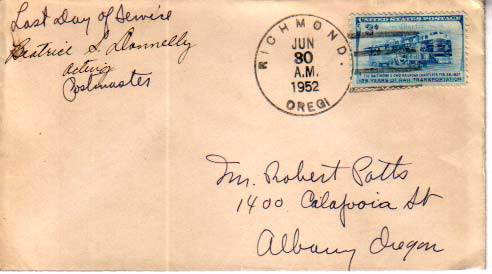 Last Day of Service
Beatrice S. Donnelly
Acting
Postmaster
RICHMOND.
JUN
30
A.M.
1952
OREG
UNITED STATES POSTAGE
3¢
THE BALTIMORE & OHIO RAILROAD CHARTERED FEB. 28, 1827
125 YEARS OF RAIL TRANSPORTATION
Mr. Robert Potts
1400 Calapooia St
Albany Oregon